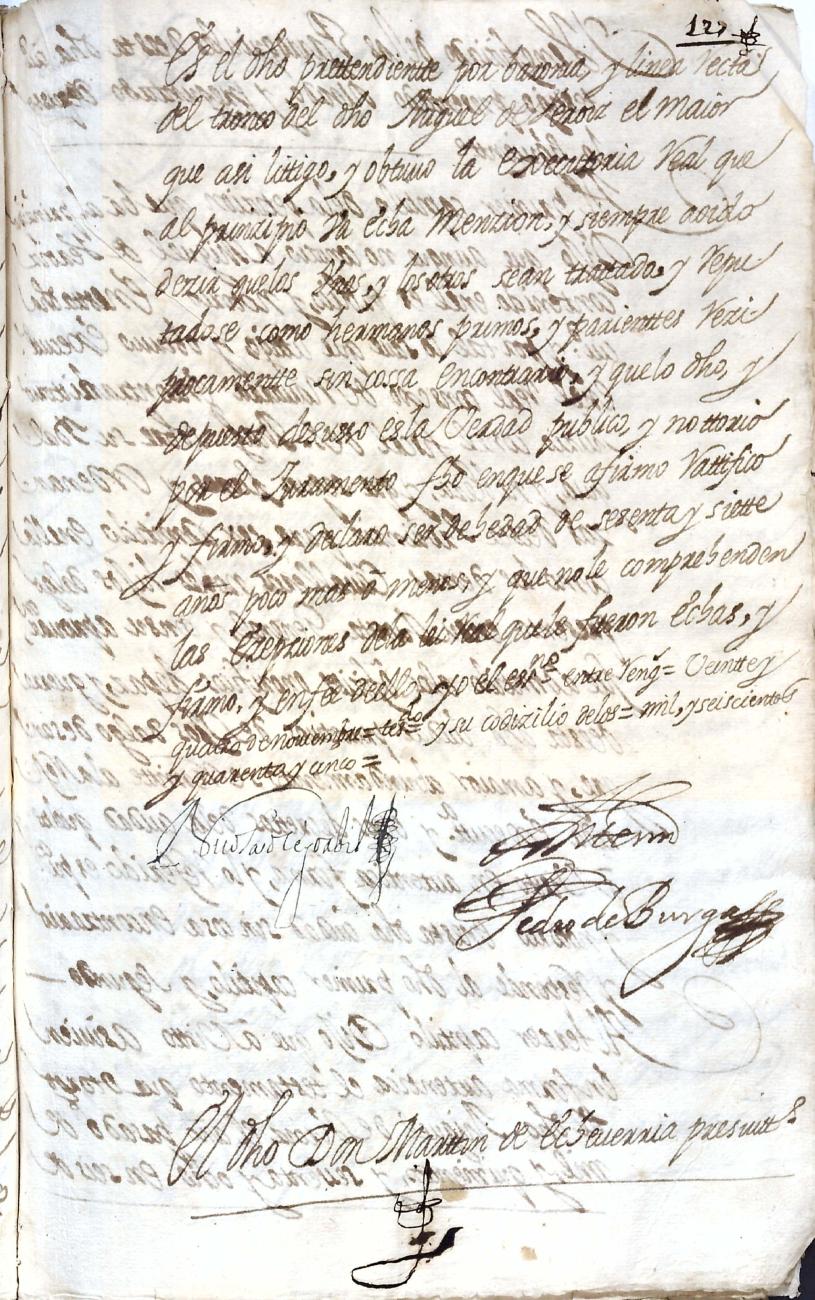 127
Es el dho prettendientte por baronia, y linea recta
del tronco del dho Miguel de el maior
que asi littigo, y obtuvo la executtoria Real que
al prinzipio va echa Menzion, y siempre aoido
dezir quelos Unos, y losotros sean trattado, y repu-
tadose como hermanos primos, y parienttes rezi-
procamentte sin cossa encontrario, y quelo dho, y
depuesto desusso esla Verdad publico, y nottorio
por el Juramento fho enquese afirmo Rattifico
y firmo, y declaro ser dehedad de sesenta y siette
años poco mas o menos, y que nole comprehenden
las Exepziones dela lei Real quele fueron echas, y
firmo, y enfee dello yo el essno entre Reng.s= Veintte y
quatro denoviembre= tesso y su codizilio delos= mil, y seiscientos
y quarenta y cinco=
Antemi
Pedro de Burga
El dho Don Marttin de Echeverria presvitt.o